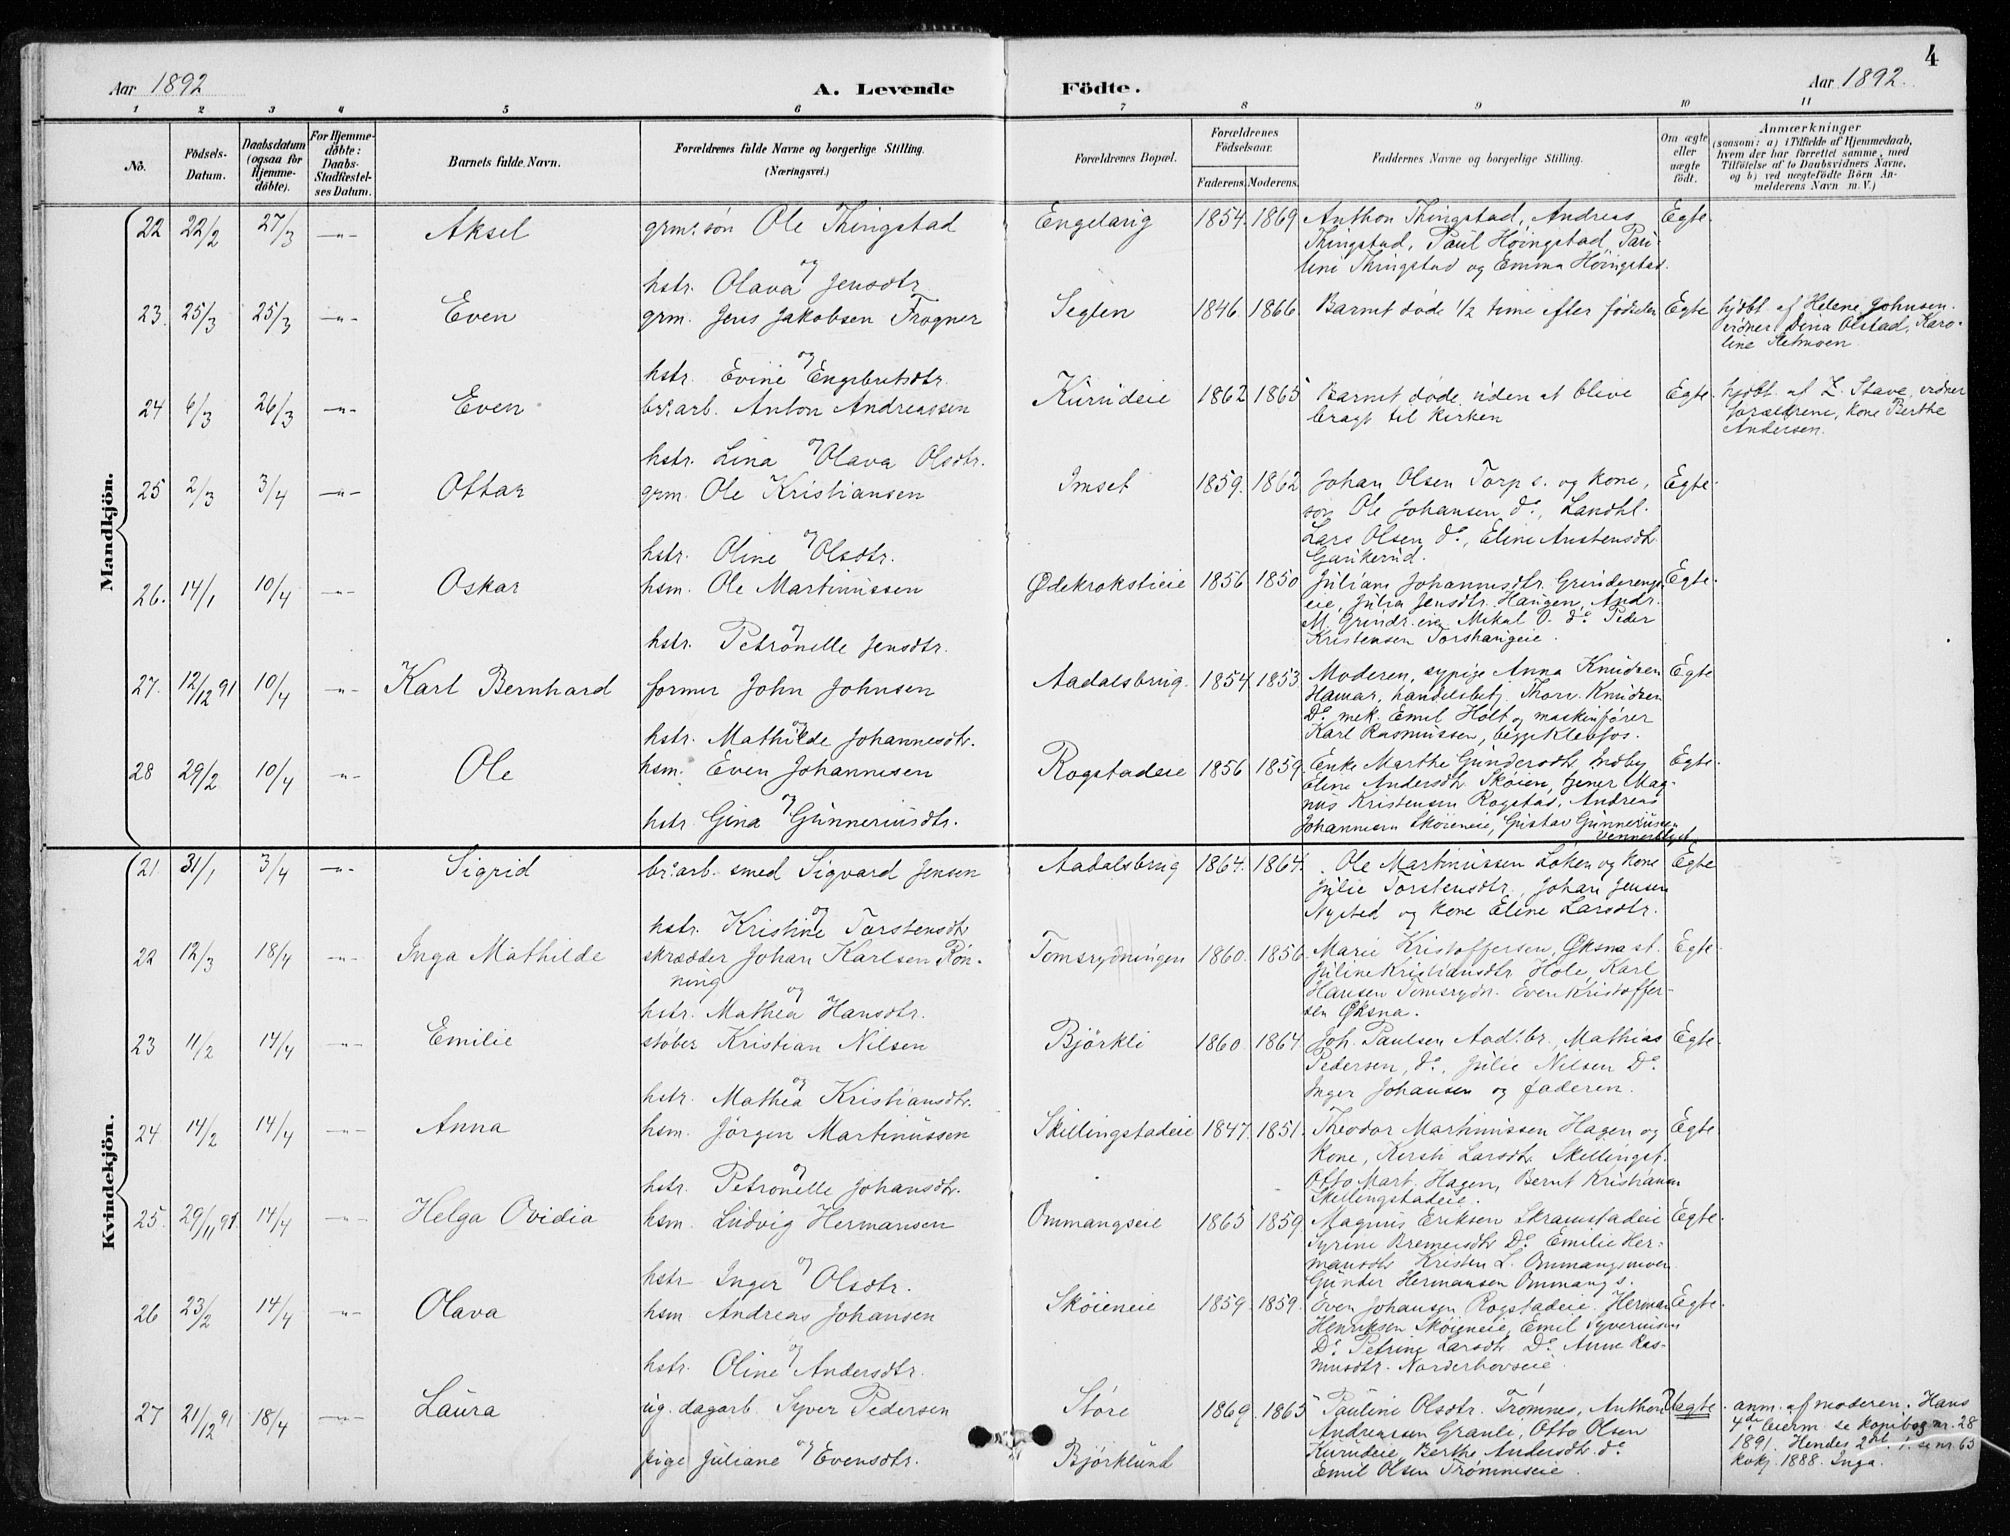 4
Aar 1892 A. Levende Födte. Aar 1892.
1 2 3 4 5 6 7 8 9 10 11
No. Födsels-Datum. Daabsdatum (ogsaa for Hjemme-døbte). For Hjemme-døbte: Daabs-Stadfæstel-ses Datum. Barnets fulde Navn. Forældrenes fulde Navne og borgerlige Stilling. (Næringsvei.) Forældrenes Bopæl. Forældrenes Födselsaar. Faderens. Moderens. Faddernes Navne og borgerlige Stilling. Om ægte eller uægte födt. Anmærkninger (saasom: a) i Tilfælde af Hjemmedaab, hvem der har forrettet samme, med Tilföielse af to Daabsvidners Navne, og b) ved uægtefödte Börn An-melderens Navn m. V.)
Mandkjön.
22 22/2 27/3 -"- Aksel grm.søn Ole Thingstad Engelaug 1854. 1869 Anthon Thingstad, Andreas Egte.
Thingstad, Paul Høingstad, Pau-
og
hstr. Olava Jensdtr. line Thingstad og Emma Høingstad.
23. 25/3 25/3 -"- Even grm. Jens Jakobsen Frogner Seglen 1846. 1866 Barnet døde 1/2 time efter fødselen Egte hjdbt. af Helene Johnsen.
vidner Dina Olstad, Karo-
line
og
hstr. Evine Engebretsdtr.
24 6/3 26/3 -"- Even br.arb. Anton Andreassen Kurudeie 1862 1865 Barnet døde uden at blive Egte. hjdbt. af Z. Stave, vidner
bragt til kirken forældrene, kone Berthe
Andersen.
og
hstr. Lina Olava Olsdtr.
25 2/3 3/4 -"- Ottar grm. Ole Kristiansen Imset 1859. 1862 Johan Olsen Torp s. og kone, Egte.
søn Ole Johansen do., Landhl.
og
hstr. Oline Olsdtr. Lars Olsen do., Eline Austensdtr.
Gaukerud.
26. 14/1 10/4 -"- Oskar hsm. Ole Martinussen Ødekrokstieie 1856 1850 Juliane Johannesdtr. Grinderengs- Egte.
eie, Julia Jensdtr. Haugen, Andr.
M. Grindr.eie, Mikal O. do. Peder
og
hstr. Petronelle Jensdtr. Kristensen Torshaugeie.
27. 12/12 91 10/4 -"- Karl Bernhard former John Johnsen Aadalsbrug. 1854 1853 Moderen, sypige Anna Knudsen Egte
Hamar, handelsbetj. Thorv. Knudsen
Do. mek. Emil Holt og maskinfører
og
hstr. Mathilde Johannesdtr. Karl Rasmussen, begge Klevfos.
28 29/2 10/4 -"- Ole hsm. Even Johannesen Rogstadeie 1856 1859. Enke Marthe Gundersdtr. Indby Egte.
Eline Andersdtr. Skøien, tjener Mag-
nus Kristensen Rogstad, Andreas
og
hstr. Gina Gunneriusdtr. Johannesen Skøieneie, Gustav Gunneriussen
Kvindekjön.
21. 31/1 3/4 -"- Sigrid br.arb. smed Sigvard Jensen Aadalsbrug 1864. 1864. Ole Martinussen Løken og kone Egte
Julie Torstensdtr., Johan Jensen
Nysted og kone Eline Larsdtr.
og
hstr. Kristine Torstensdtr.
22 12/3 18/4 -"- Inga Mathilde skrædder Johan Karlsen Røn- Tomsrydningen 1860. 1856. Marie Kristoffersen, Øksna st. Egte.
ning Juline Kristiansdtr. Hole, Karl
Hansen Tomsrydn. Even Kristoffer-
og
hstr. Mathea Hansdtr. sen Øksna.
23 11/2 14/4 -"- Emilie støber Kristian Nilsen Bjørkli 1860. 1864. Joh. Paulsen Aad.br. Mathias Egte.
Pedersen, do., Julie Nilsen Do.
Inger Johansen og faderen.
og
hstr. Mathea Kristiansdtr.
24 14/2 14/4 -"- Anna hsm. Jørgen Martinussen Skillingstadeie 1847. 1851. Theodor Martinussen Hagen og Egte.
kone, Kersti Larsdtr. Skillingst.
og
hstr. Petronelle Johansdtr. Otto Mart. Hagen, Bernt Kristiansen
Skillingstadeie.
25. 29/11 91. 14/4 -"- Helga Ovidia hsm. Ludvig Hermansen Ommangseie 1865 1859 Magnus Eriksen Skramstadeie Egte.
Syrine Bremersdtr. Do. Emilie Her-
mansdtr. Kristen L. Ommangsmoen
og
hstr. Inger Olsdtr. Gunder Hermansen Ommang s.
26 23/2 14/4 -"- Olava hsm. Andreas Johansen Skøieneie 1859. 1859. Even Johansen Rogstadeie, Herman Egte.
Henriksen Skøieneie, Emil Syveriusen
Do. Petrine Larsdtr. Do. Anne Ras-
og
hstr. Oline Andersdtr. musdtr. Norderhovseie.
27 21/12 91 18/4 -"- Laura ug. dagarb. Syver Pedersen Støre 1869. 1865 Pauline Olsdtr. Trømnes, Anthon Uægte. anm. af moderen. Hans
Andreassen Granli, Otto Olsen 4de leierm. se kopibog nr. 28
og
pige Juliane Evensdtr. Bjørklund Kurudeie, Berthe Andersdtr. do. 1891. Hendes 2det
Emil Olsen Trømneseie. 1888. Inga.